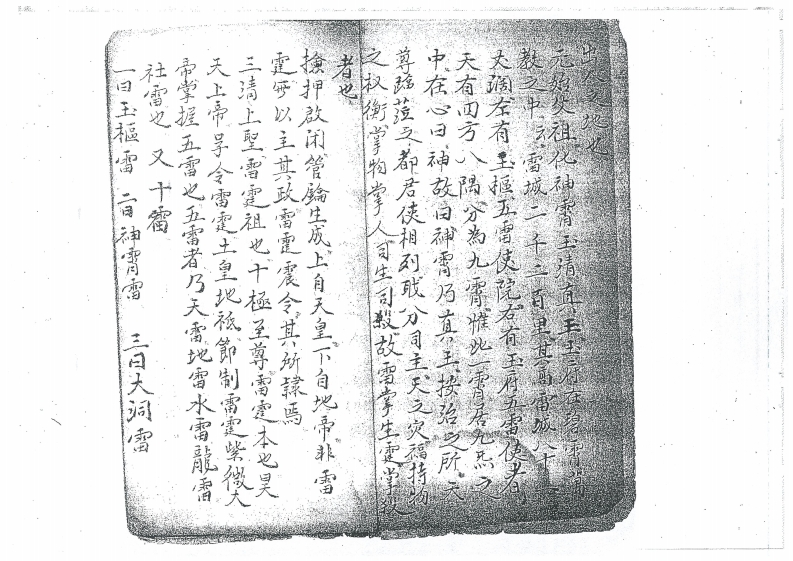 出入之地也
元始父祖化神霄玉清真王玉府在碧霄梵
教之中 雷城二千二百里其高雷城八十一
丈濶左有玉樞五雷使院右有玉府五雷使者
天有四方八隅分為九霄惟此一霄居九炁之
中在心曰神故曰神霄乃真王按治之所天
尊臨蒞之都君使相列職分司主天之灾福持物
之权衡掌物掌人司生司殺故雷掌生霆掌殺
者也
撿押啟闭管鑰生成上自天皇下自地帝非雷
霆無以主其政雷霆震令其所隷焉
三清上聖雷霆祖也十極至尊雷霆本也昊
天上帝号令雷霆土皇地祇節制雷霆紫微大
帝掌握五雷也五雷者乃天雷地雷水雷龍雷
社雷也 又十雷
一曰玉樞雷 二曰神霄雷 三曰大洞雷